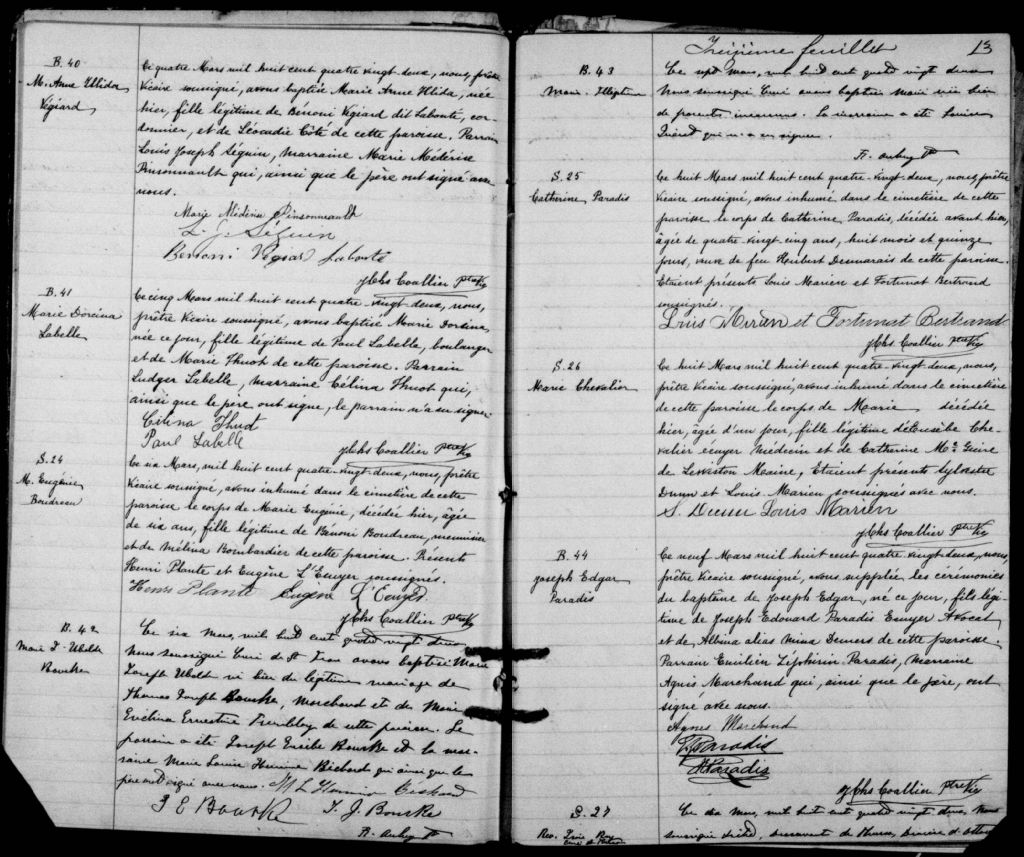 B. 40
M. Anne Ulhida
Végiard
Ce quatre Mars mil huit cent quatre vingt-deux, nous, prêtre
Vicaire soussigné, avons baptisé Marie Anne Ulida, née
hier, fille légitime de Bénoni Végiard dit Labonté, cor-
donnier, et de Léocadie Côté de cette paroisse. Parrain
Louis Joseph Séguin, marraine Marie Médérise
Pinsonnault qui, ainsi que le père ont signé avec
nous.
Marie Médérise Pinsonnault
L. J. Séguin
Benoni Vegiar Labonté
J Chs Coallier ptre Vic
B. 41
Marie Dorcina
Labelle
Ce cinq Mars mil huit cent quatre-vingt-deux, nous,
prêtre Vicaire soussigné, avons baptisé Marie Dorcina,
née ce jour, fille légitime de Paul Labelle, boulanger
et de Marie Thuot de cette paroisse. Parrain
Ludger Labelle, marraine Célina Thuot qui,
ainsi que le père ont signé, le parrain n'a su signer.
Célina Thuot
Paul Labelle
J Chs Coallier ptre Vic
S. 24
M. Eugénie
Boudreau
Ce six Mars, mil huit cent quatre-vingt-deux, nous, prêtre
Vicaire soussigné, avons inhumé dans le cimetière de cette
paroisse le corps de Marie Eugénie, décédée hier, âgée
de six ans, fille légitime de Bénoni Boudreau, menuisier
et de Mélina Bombardier de cette paroisse. Présents
Henri Plante et Eugène L'Ecuyer soussignés.
Henri Plante Eugène L'Ecuyer
J Chs Coallier ptre Vic
B. 42
Marie J. Ubalde
Bourke
Ce six Mars, mil huit cent quatre vingt deux
Nous soussigné Curé de St Jean avons baptisé Marie
Joseph Ubald né hier du légitime mariage de
Thomas Joseph Bourke, marchand et de Marie
Evelina Ernestine Tremblay de cette paroisse. Le
parrain a été Joseph Bourke et la mar-
raine Marie Louise Herminie Bichard qui ainsi que le
père ont signé avec nous. M L Herminie Bichard
J E Bourke T. J. Bourke
F. Aubry Ptre
Treizième feuillet 13
B. 43
Marie. Illégitime
Ce sept mars, mil huit cent quatre vingt deux
Nous soussigné Curé avons baptisé Marie née hier
de parents inconnus. La marraine a été Louise
qui n'a su signer.
F. Aubry Ptre
S. 25
Catherine Paradis
Ce huit Mars mil huit cent quatre-vingt-deux, nous, prêtre
Vicaire soussigné, avons inhumé dans le cimetière de cette
paroisse le corps de Catherine Paradis, décédée avant hier,
âgée de quatre-vingt-cinq ans, huit mois et quinze
jours, veuve de feu Heribert Desmarais de cette paroisse.
Etaient présents Louis Marien et Fortunat Bertrand
soussignés.
Louis Marien et Fortunat Bertrand
J Chs Coallier ptre Vic
S. 26
Marie Chevalier
Ce huit Mars mil huit cent quatre-vingt-deux, nous,
prêtre Vicaire soussigné, avons inhumé dans le cimetière
de cette paroisse le corps de Marie décédée
hier, âgée d'un jour, fille légitime d'Eusèbe Che-
valier écuyer Médecin et de Catherine Mc Guire
de Lewiston Maine, Etaient présents Sylvestre
Dunn et Louis-Marien soussignés avec nous.
S. Dunn Louis Marien
J Chs Coallier Ptre Vic
B. 44
Joseph Edgar
Paradis
Ce neuf Mars mil huit cent quatre vingt-deux, nous,
prêtre Vicaire soussigné, avons suppléé les cérémonies
du baptême de Joseph Edgar, né ce jour, fils légi-
time de Joseph Edouard Paradis Ecuyer Avocat
et de Albina alias Mina Demers de cette paroisse.
Parrain Emilien Zéphirin Paradis, Marraine
Agnès Marchand qui, ainsi que le père, ont
signé avec nous.
Agnès Marchand
E Paradis
Paradis
J Chs Coallier ptre Vic
S. 27
Ce dix mars, mil huit cent quatre vingt deux, Nous